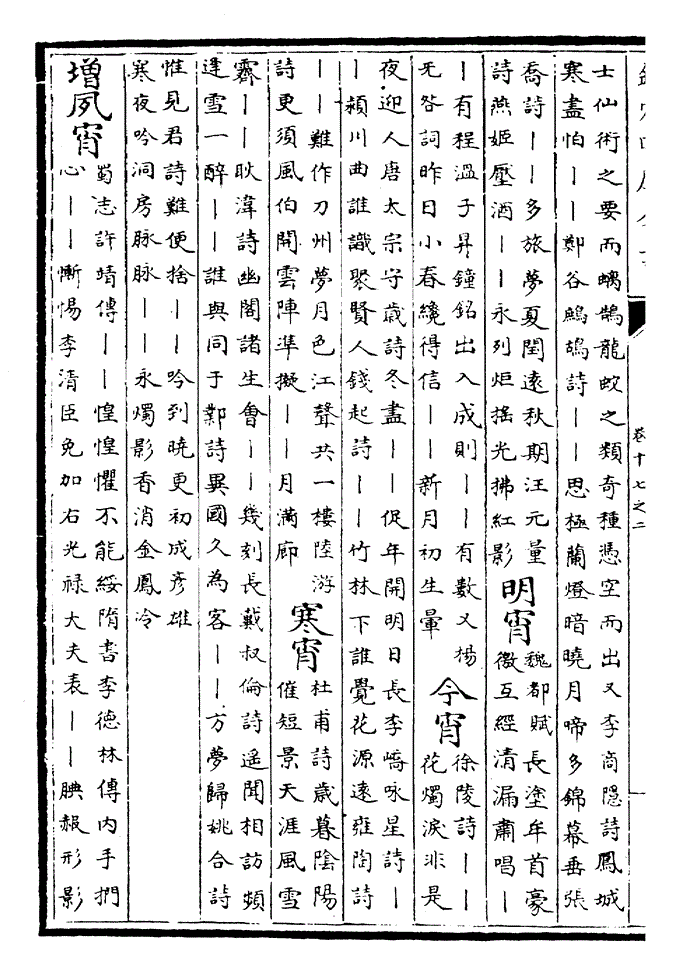 士仙術之要而螭鵠龍蛟之類奇種憑空而出又李商隱詩鳳城
寒盡怕丨丨鄭谷鷓鴣詩丨丨思極蘭燈暗曉月啼多錦幕垂張
喬詩丨丨多旅夢夏閏遠秋期汪元量
詩燕姬壓酒丨丨永列炬搖光拂紅影
明宵
魏都賦長塗牟首豪
徼互經清漏肅唱丨
丨有程溫子昇鐘銘出入成則丨丨有數又楊
无咎詞昨日小春纔得信丨丨新月初生暈
今宵
徐陵詩丨丨
花燭淚非是
夜迎人唐太宗守歲詩冬盡丨丨促年開明日長李嶠咏星詩丨
丨潁川曲誰識聚賢人錢起詩丨丨竹林下誰覺花源遠雍陶詩
丨丨難作刀州夢月色江聲共一樓陸游
詩更須風伯開雲陣準擬丨丨月滿廊
寒宵
杜甫詩歲暮陰陽
催短景天涯風雪
霽丨丨耿湋詩幽閣諸生會丨丨幾刻長戴叔倫詩遥聞相訪頻
逢雪一醉丨丨誰與同于鄴詩異國久為客丨丨方夢歸姚合詩
惟見君詩難便捨丨丨吟到曉更初成彥雄
寒夜吟洞房脉脉丨丨永燭影香消金鳳冷
增夙宵
蜀志許靖傳丨丨惶惶懼不能綏隋書李德林傳内手捫
心丨丨慚惕李清臣免加右光祿大夫表丨丨腆赧形影
卷十七之二